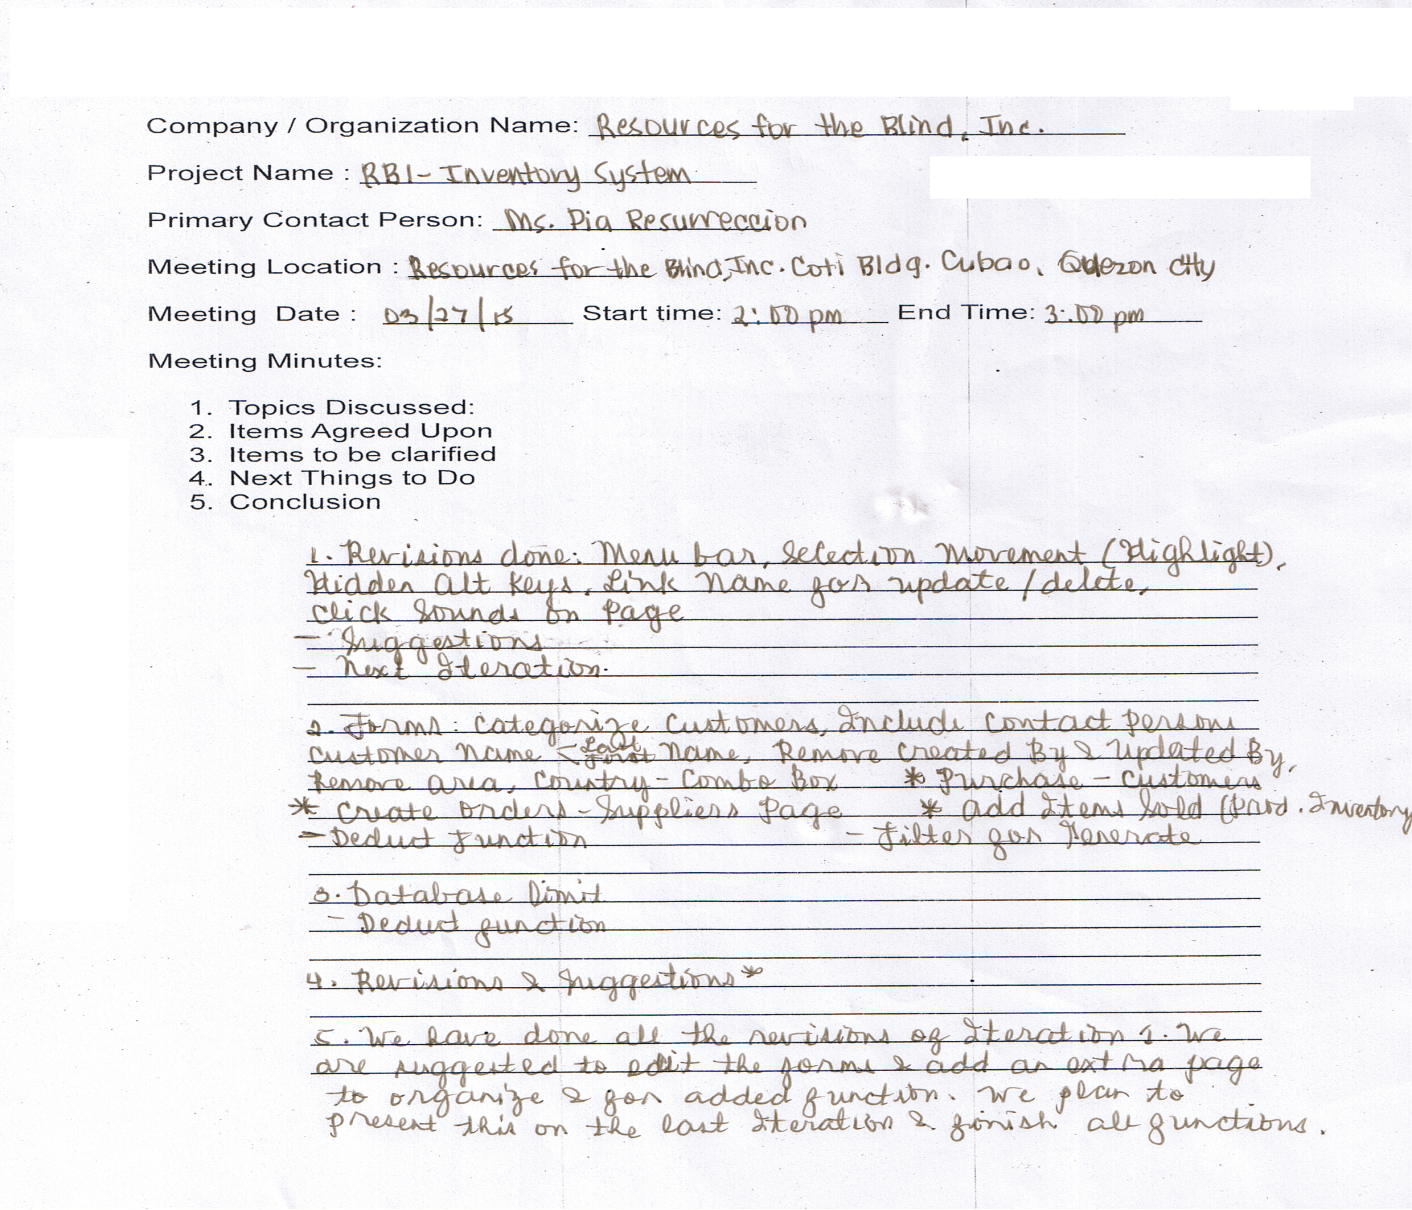 Company / Organization Name: Resources for the Blind, Inc.
Project Name : RBI - Inventory System
Primary Contact Person: Ms. Pia Resurreccion
Meeting Location : Resources for the Blind, Inc. Coti Bldg. Cubao, Quezon City
Meeting Date : 03/27/15 Start time: 2:00 pm End Time: 3:00 pm
Meeting Minutes:
1. Topics Discussed:
2. Items Agreed Upon
3. Items to be clarified
4. Next Things to Do
5. Conclusion
1. Revisions done: Menu bar, Selection Movement (Highlight),
Hidden Alt Keys, Link Name for update / delete,
Click Sounds on Page
- Suggestions
- Next Iteration.
2. Forms: Categorize Customers, Include Contact Person
Customer Name < Last First Name, Remove Created By & Updated By,
Remove Area, Country - Combo Box * Purchase - Customers
* Create Orders - Suppliers Page * Add Items Sold (Prod. Inventory
- Deduct Function - Filter for Generate
3. Database limit
- Deduct function
4. Revisions & Suggestions *
5. We have done all the revisions of Iteration 1. We
are suggested to edit the forms & add an extra page
to organize & for added function. We plan to
present this on the last Iteration & finish all functions.